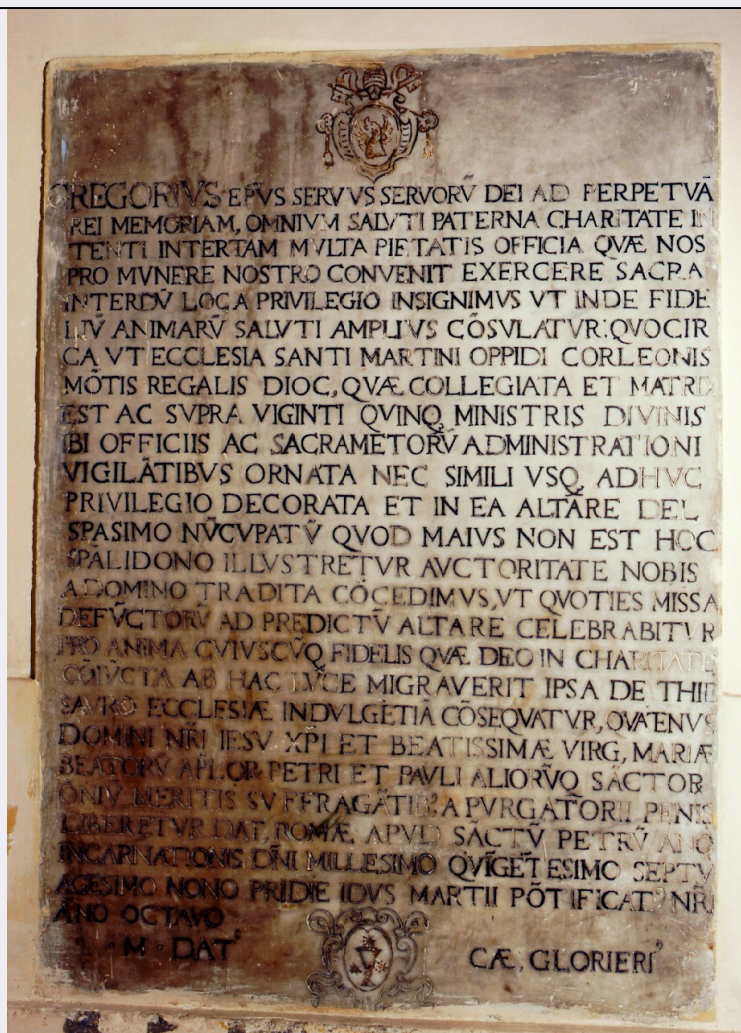 GREGORIVS EPVS SERVVS SERVORV̄ DEI AD PERPETVĀ
REI MEMORIAM, OMNIVM SALVTI PATERNA CHARITATE IN
TENTI INTERTAM MVLTA PIETATIS OFFICIA QVÆ NOS
PRO MVNERE NOSTRO CONVENIT EXERCERE SACRA
INTERDV̄ LOCA PRIVILEGIO INSIGNIMVS VT INDE FIDE
LIV̄ ANIMARV̄ SALVTI AMPLIVS CŌSVLATVR: QVOCIR
CA VT ECCLESIA SANTI MARTINI OPPIDI CORLEONIS
MŌTIS REGALIS DIOC, QVÆ COLLEGIATA ET MATRIX
EST AC SVPRA VIGINTI QVINQ, MINISTRIS DIVINIS
IBI OFFICIIS AC SACRAMĒTORV̄ ADMINISTRATIONI
VIGILĀTIBVS ORNATA NEC SIMILI VSQ, ADHVC
PRIVILEGIO DECORATA ET IN EA ALTARE DEL
SPASIMO NV̄CVPATV̄ QVOD MAIVS NON EST HOC
SPĀLI DONO ILLVSTRETVR AVCTORITATE NOBIS
A DOMINO TRADITA CŌCEDIMVS, VT QVOTIES MISSA
DEFV̄CTORV̄ AD PREDICTV̄ ALTARE CELEBRABITVR
PRO ANIMA CVIVSCV̄Q, FIDELIS QVÆ DEO IN CHARITATE
CŌIV̄CTA AB HAC LVCE MIGRAVERIT IPSA DE THE
SAVRO ECCLESIÆ INDVLGĒTIĀ CŌSEQVATVR, QVATENVS
DOMINI NR̄I IESV XP̄I ET BEATISSIMÆ VIRG, MARIÆ
BEATORV̄ AP̄LOR PETRI ET PAVLI ALIORV̄Q, SĀCTOR
ŌNIV̄ MERITIS SVFFRAGĀTIB' A PVRGATORII PENIS
LIBERETVR DAT, ROMÆ APVD SĀCTV̄ PETRV̄ AÑO
INCARNATIONIS DN̄I MILLESIMO QVĪGĒTESIMO SEPTV
AGESIMO NONO PRIDIE IDVS MARTII PŌTIFICAT' NR̄I
ĀNO OCTAVO
· M · DAT'
CÆ, GLORIERI'